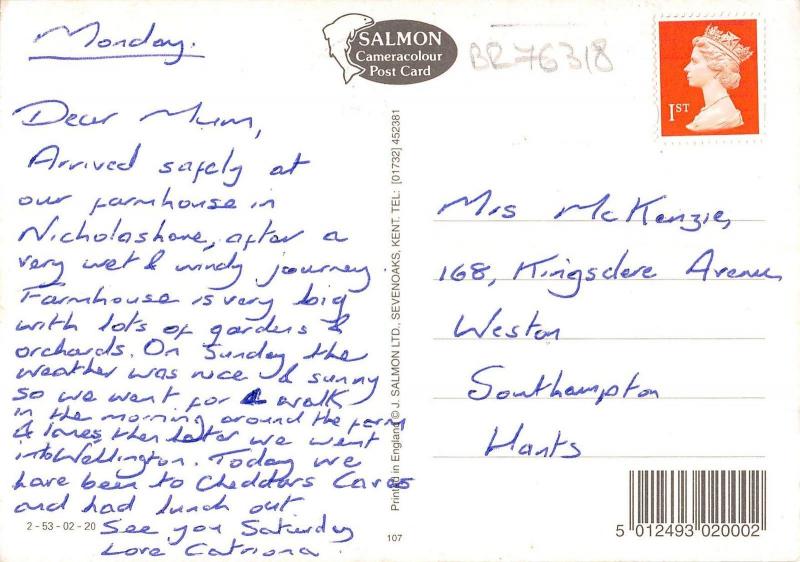 Monday.
Dear Mum,
Arrived safely at
our farmhouse in
Nicholashane, after a
very wet & windy journey.
Farmhouse is very big
with lots of gardens &
orchards. On Sunday the
weather was nice & sunny
so we went for a walk
in the morning around the farm
& lanes, then later we went
into Wellington. Today we
have been to Cheddars Caves
and had lunch out.
See you Saturday
Love Catriona.
SALMON
Cameracolour
Post Card
BR76318
1ST
Mrs McKenzie,
168, Kingsdere Avenue
Weston
Southampton
Hants
Printed in England © J. SALMON LTD., SEVENOAKS, KENT. TEL: [01732] 452381
2 - 53 - 02 - 20
107
5 012493 020002